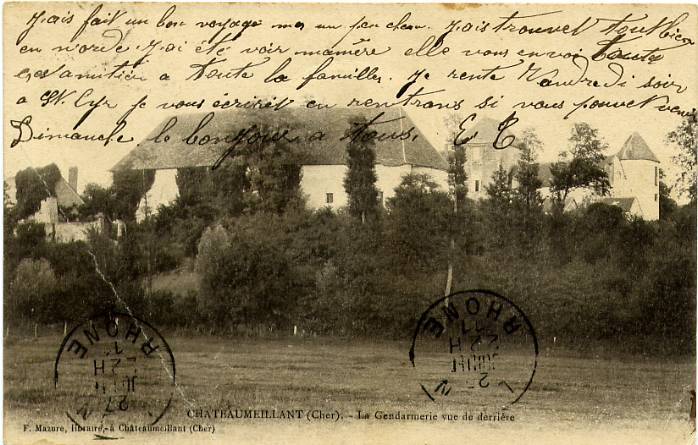 J'ais fait un bon voyage mes un peu chau. J'ais trouvet toutbien
en nordre J'ai été voir mamère elle vous envoi toute
ses amitién a toute la familles. Je rente Vandredi soir
a St. Cyr je vous écrirét en rentrans si vous pouvet venir
Dimanche. le bonjour a tous. E C
RHONE
12 H
JUIN
RHONE
JUIN
CHATEAUMEILLANT (Cher). - La Gendarmerie vue de derrière
F. Mazure, libraire, à Chateaumeillant (Cher)